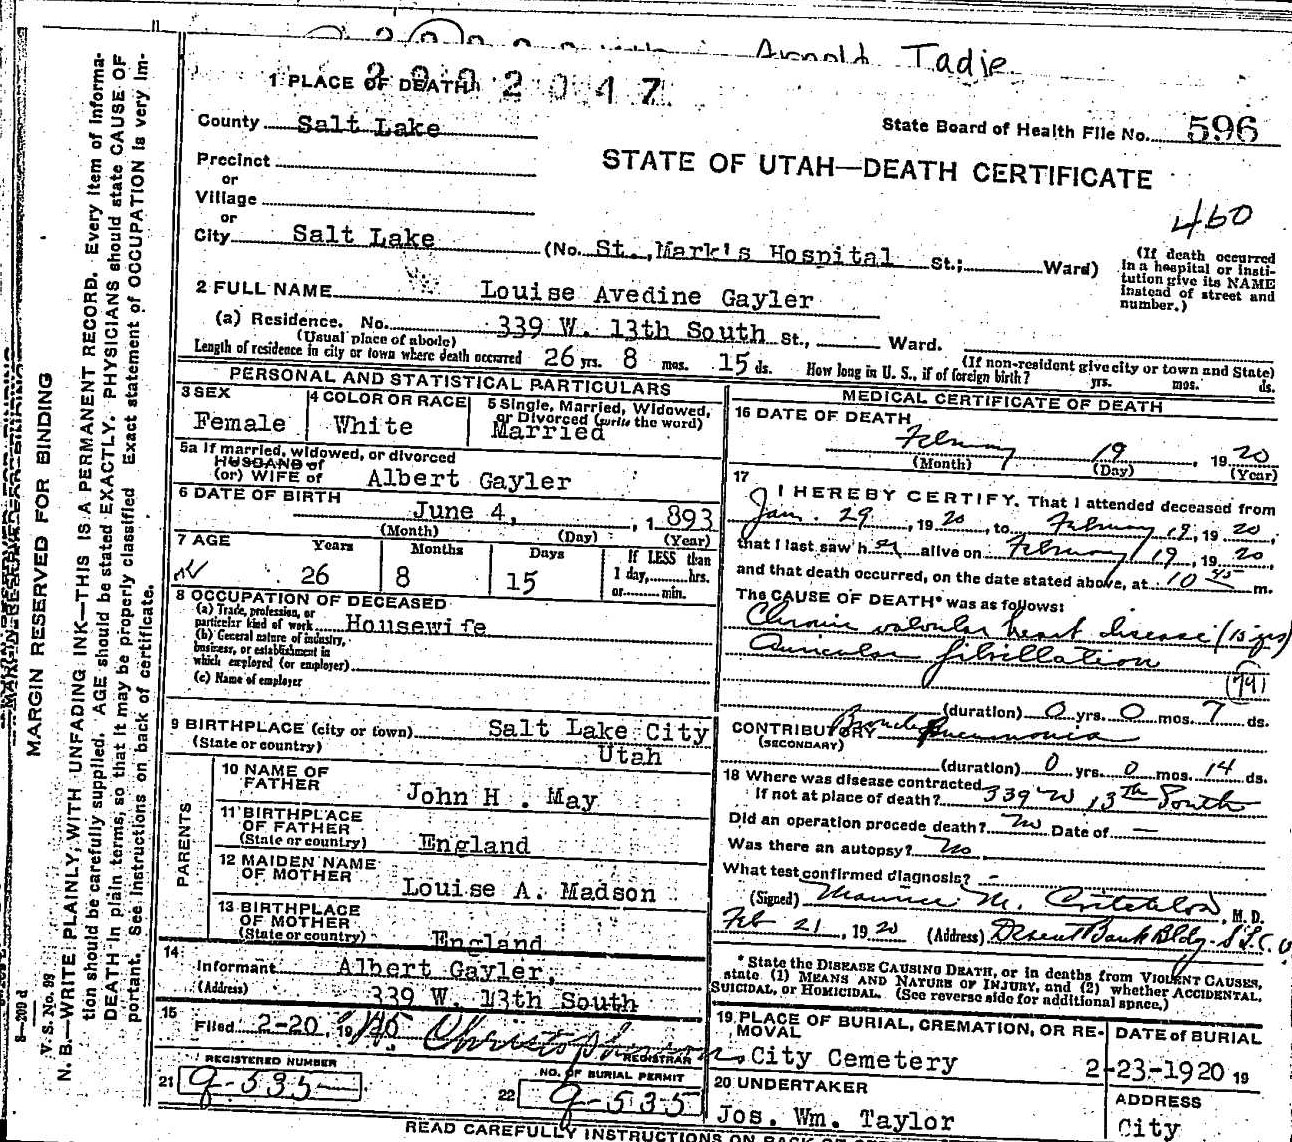 Arnold Tadje
1 PLACE OF DEATH 2002047
County Salt Lake
State Board of Health File No. 596
Precinct
or
STATE OF UTAH—DEATH CERTIFICATE
Village
or
460
City Salt Lake (No. St., Mark's Hospital St.; Ward)
(If death occurred in a hospital or insti-
tution give its NAME
instead of street and
number.)
2 FULL NAME Louise Avedine Gayler
(a) Residence. No. 339 W. 13th South St., Ward.
(Usual place of abode)
(If non-resident give city or town and State)
Length of residence in city or town where death occurred 26 yrs. 8 mos. 15 ds. How long in U. S., if of foreign birth? yrs. mos. ds.
PERSONAL AND STATISTICAL PARTICULARS
3 SEX
Female
4 COLOR OR RACE
White
5 Single, Married, Widowed,
or Divorced (write the word)
Married
5a If married, widowed, or divorced
HUSBAND of
(or) WIFE of Albert Gayler
6 DATE OF BIRTH
June 4, , 1893
(Month) (Day) (Year)
7 AGE Years Months Days If LESS than
26 8 15 1 day, hrs.
or min.
8 OCCUPATION OF DECEASED
(a) Trade, profession, or
particular kind of work Housewife
(b) General nature of industry,
business, or establishment in
which employed (or employer)
(c) Name of employer
9 BIRTHPLACE (city or town) Salt Lake City
(State or country) Utah
PARENTS
10 NAME OF
FATHER John H. May
11 BIRTHPLACE
OF FATHER
(State or country) England
12 MAIDEN NAME
OF MOTHER Louise A. Madson
13 BIRTHPLACE
OF MOTHER
(State or country) England
14
Informant Albert Gayler,
(Address) 339 W. 13th South
15
Filed 2-20, 19
REGISTRAR
REGISTERED NUMBER
21 9-535
NO. OF BURIAL PERMIT
22 9-535
MEDICAL CERTIFICATE OF DEATH
16 DATE OF DEATH
February 19, 1920
(Month) (Day) (Year)
17
I HEREBY CERTIFY, That I attended deceased from
Jan. 29, 1920, to February 19, 1920,
that I last saw her alive on February 19, 1920,
and that death occurred, on the date stated above, at 10 45 m.
The CAUSE OF DEATH* was as follows:
Chronic valvular heart disease (15 yrs)
Auricular fibrillation
(79)
(duration) 0 yrs. 0 mos. 7 ds.
CONTRIBUTORY Broncho pneumonia
(SECONDARY)
(duration) 0 yrs. 0 mos. 14 ds.
18 Where was disease contracted
If not at place of death? 339 W 13th South
Did an operation precede death? no Date of —
Was there an autopsy? No.
What test confirmed diagnosis? -
(Signed) Maurice M. Critchlow, M. D.
Feb 21, 1920 (Address) Deseret Bank Bldg. S.L.C. U.
* State the DISEASE CAUSING DEATH, or in deaths from VIOLENT CAUSES,
state (1) MEANS AND NATURE OF INJURY, and (2) whether ACCIDENTAL,
SUICIDAL, or HOMICIDAL. (See reverse side for additional space.)
19 PLACE OF BURIAL, CREMATION, OR RE-
MOVAL
City Cemetery
DATE of BURIAL
2-23-1920 19
20 UNDERTAKER
Jos. Wm. Taylor
ADDRESS
City
READ CAREFULLY INSTRUCTIONS ON BACK OF
MARGIN RESERVED FOR BINDING
N. B.—WRITE PLAINLY, WITH UNFADING INK—THIS IS A PERMANENT RECORD. Every item of informa-
tion should be carefully supplied. AGE should be stated EXACTLY. PHYSICIANS should state CAUSE OF
DEATH in plain terms, so that it may be properly classified. Exact statement of OCCUPATION is very im-
portant. See instructions on back of certificate.
V. S. No. 99